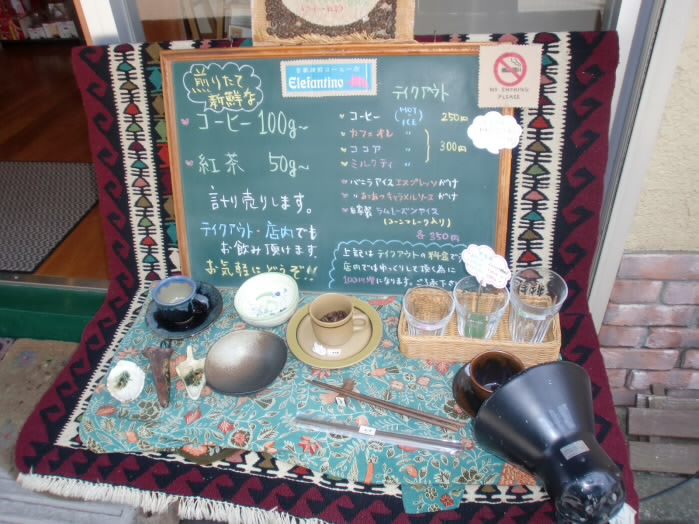 Elefantino
NO SMOKING
PLEASE
煎りたて
新鮮な
コーヒー 100g~
紅茶 50g~
計り売りします。
テイクアウト・店内でも
お飲み頂けます。
お気軽にどうぞ!!
テイクアウト
コーヒー (HOT ICE) 250円
カフェオレ 〃
ココア 〃 300円
ミルクティ 〃
バニラアイスエスプレッソがけ
〃 キャラメルソースがけ
自家製ラムレーズンアイス
(コーンフレーク入り)
各350円
上記はテイクアウトの料金です
店内ではゆっくりして頂く為に
100円増になります。ご了承下さい